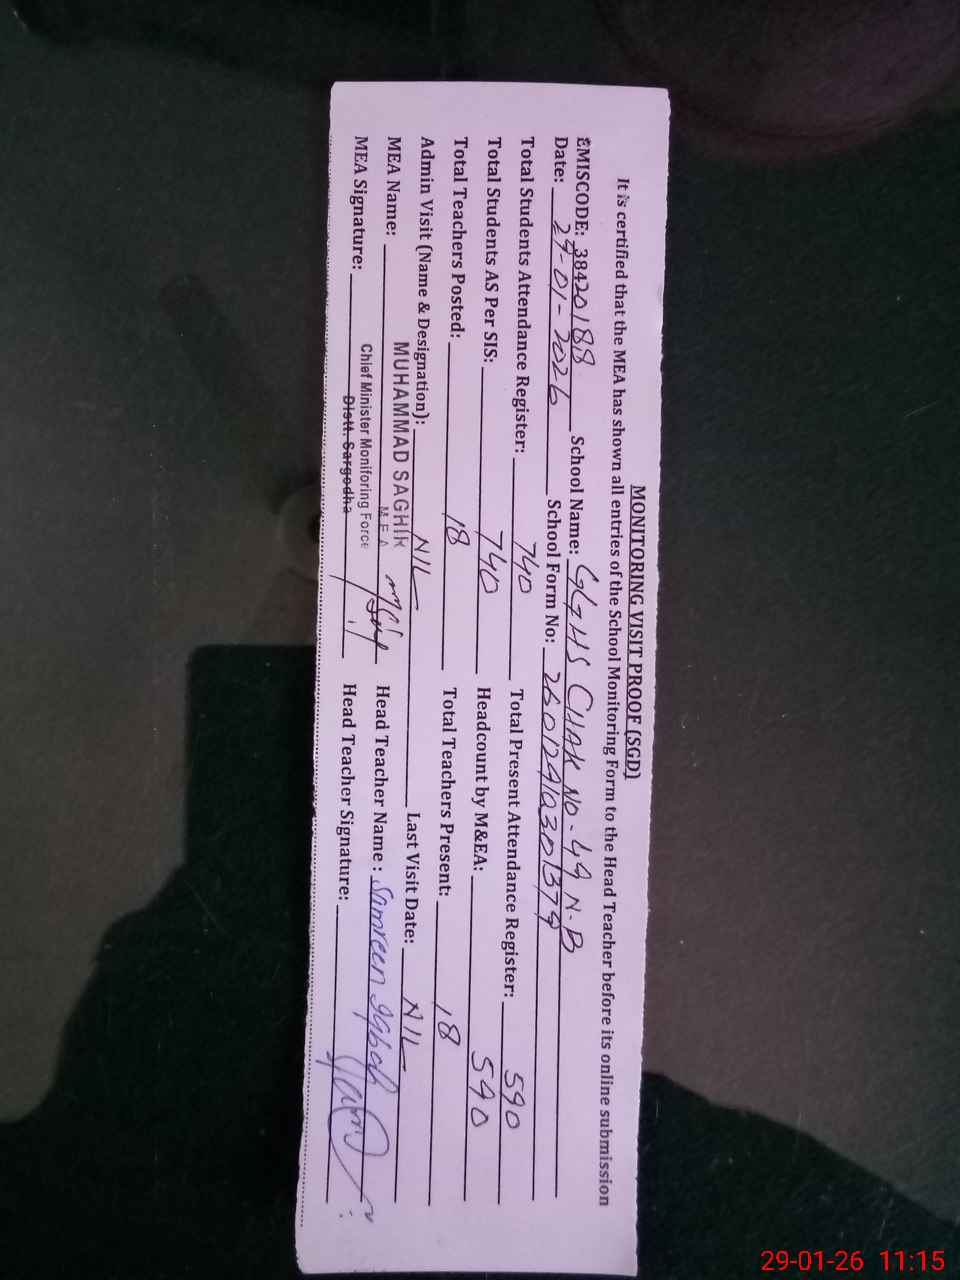 MONITORING VISIT PROOF (SGD)
It is certified that the MEA has shown all entries of the School Monitoring Form to the Head Teacher before its online submission
EMISCODE: 38420188 School Name: GGHS CHAK NO. 49 N.B
Date: 29-01-2026 School Form No: 26012910301379
Total Students Attendance Register: 740 Total Present Attendance Register: 590
Total Students AS Per SIS: 740 Headcount by M&EA: 590
Total Teachers Posted: 18 Total Teachers Present: 18
Admin Visit (Name & Designation): NIL Last Visit Date: NIL
MEA Name: MUHAMMAD SAGHIR Head Teacher Name : Samreen Iqbal
M.E.A
Chief Minister Moniforing Force
MEA Signature: Distt. Sargodha Head Teacher Signature:
29-01-26 11:15